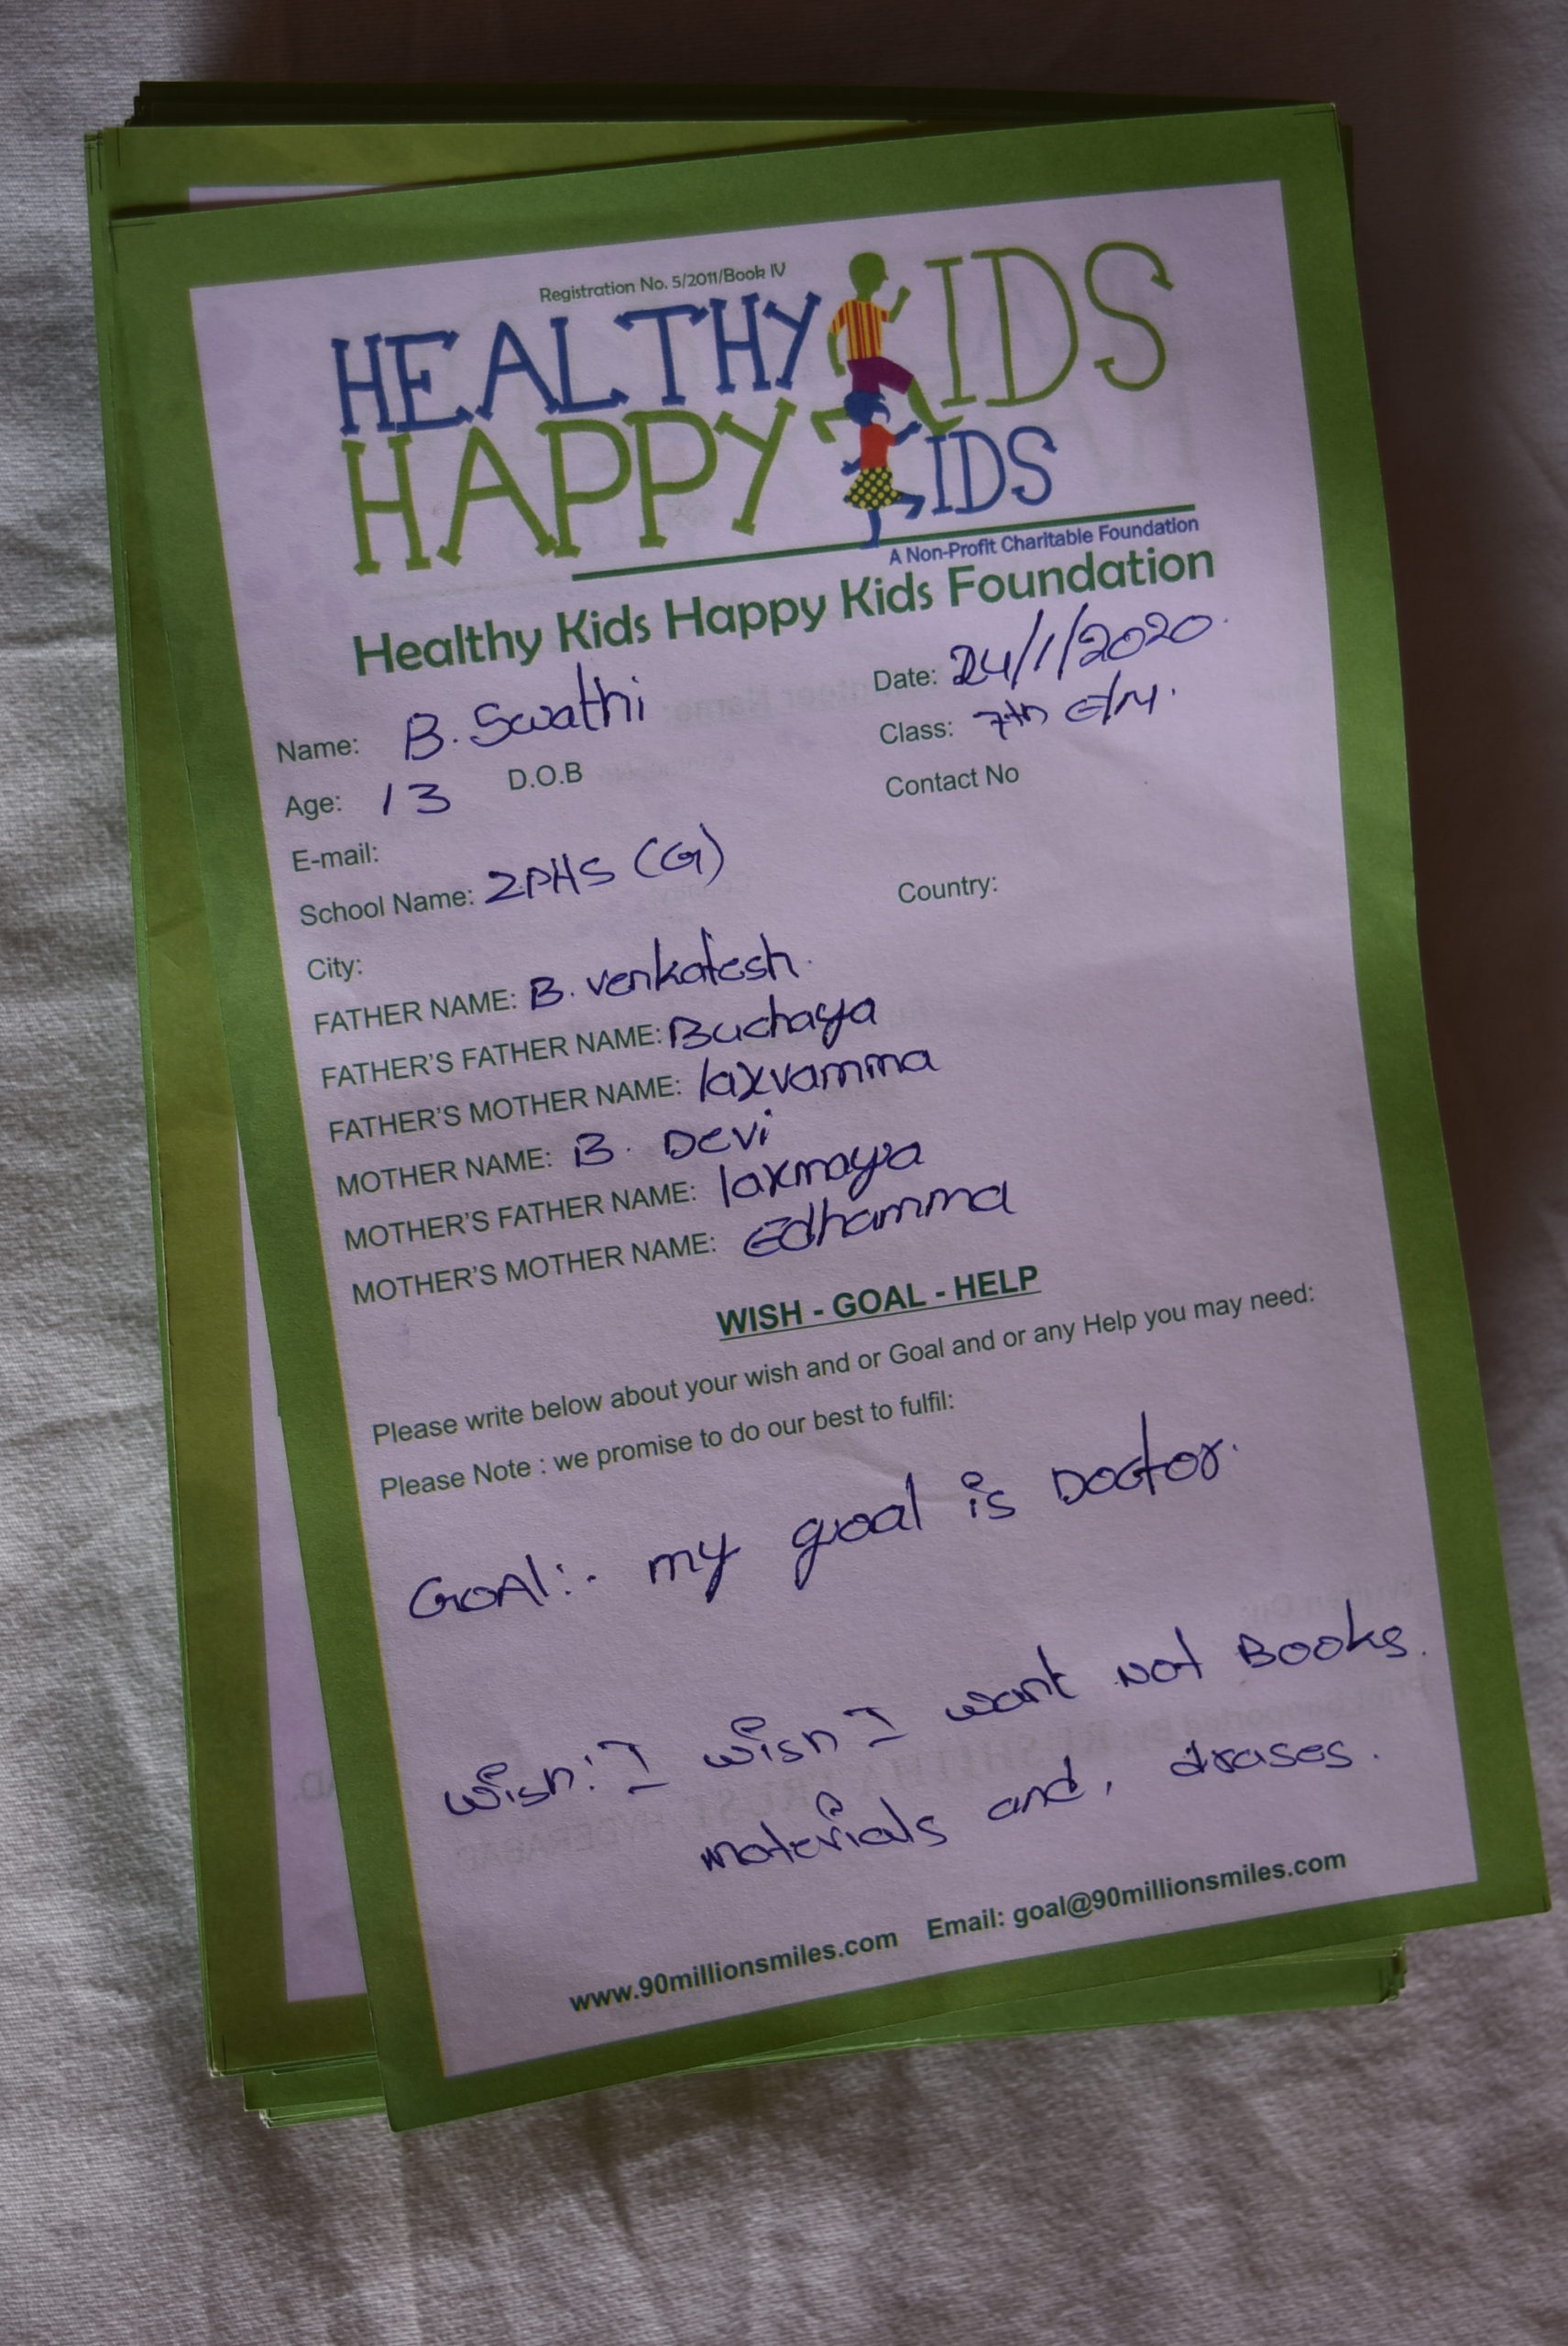 Registration No. 5/2011/Book IV
HEALTHY KIDS
HAPPY KIDS
A Non-Profit Charitable Foundation
Healthy Kids Happy Kids Foundation
Date: 24/1/2020.
Name: B. Swathi
Class: 7th E/M.
Age: 13 D.O.B
Contact No
E-mail:
School Name: ZPHS (G)
Country:
City:
FATHER NAME: B. venkatesh.
FATHER'S FATHER NAME: Buchaya
FATHER'S MOTHER NAME: laxvamma
MOTHER NAME: B. Devi
MOTHER'S FATHER NAME: laxmaya
MOTHER'S MOTHER NAME: Edhamma
WISH - GOAL - HELP
Please write below about your wish and or Goal and or any Help you may need:
Please Note : we promise to do our best to fulfil:
GOAl:- my goal is Doctor.
wish: I wish I want Not Books.
materials and, drases.
www.90millionsmiles.com Email: goal@90millionsmiles.com